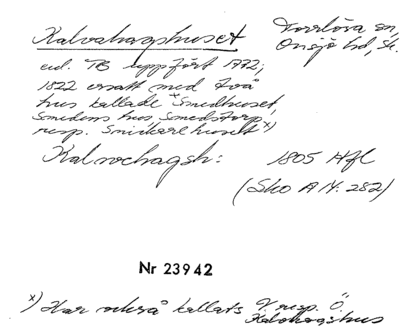 Kalvahagshuset
Torrlösa sn,
Onsjö hd, Sk.
enl. TB uppfört 1772;
1822 ersatt med två
hus kallade "Smedhuset,
Smedens hus, Smedstorp,
resp. Snickarehuset x)
Kalvhagsh: 1805 Hfl
(Sko A IV: 282)
Nr 23942
x) Har också kallats V. resp. Ö.
Kalvhagshus